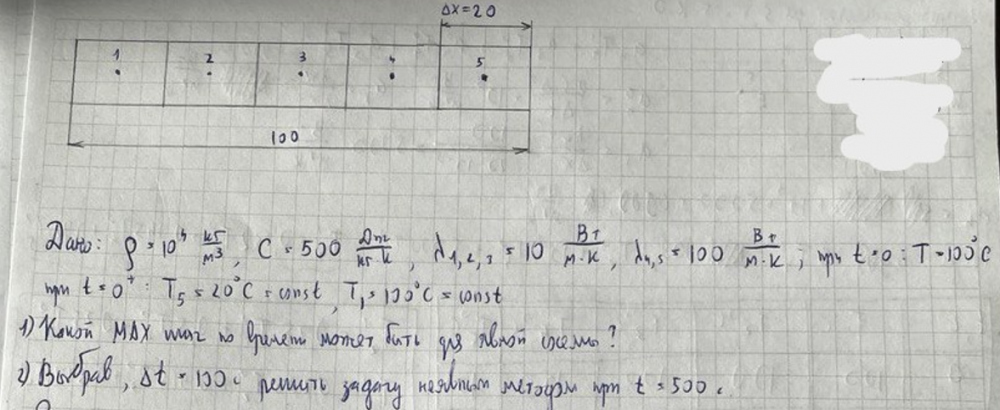 Δx=20
1 2 3 4 5
100
Дано: ρ = 10⁴ кг/м³, C = 500 Дж/кг·К, λ₁,₂,₃ = 10 Вт/м·К, λ₄,₅ = 100 Вт/м·К; при t=0 : T=100°C
при t = 0⁺ : T₅ = 20°C = const, T₁ = 100°C = const
1) Какой MAX шаг по времени может быть для явной схемы?
2) Выбрав, Δt = 100 с решить задачу неявным методом при t = 500 с.